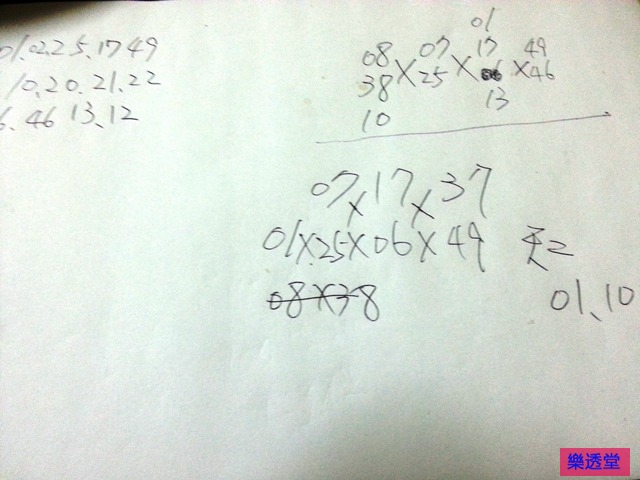 01.02.25.17 49
10.20.21.22
6.46 13.12
01
08 07 17 49
38 × 25 × 06 × 46
10 13
07 × 17 × 37
01 × 25 × 06 × 49 天二
08 × 38
01、10
樂透堂